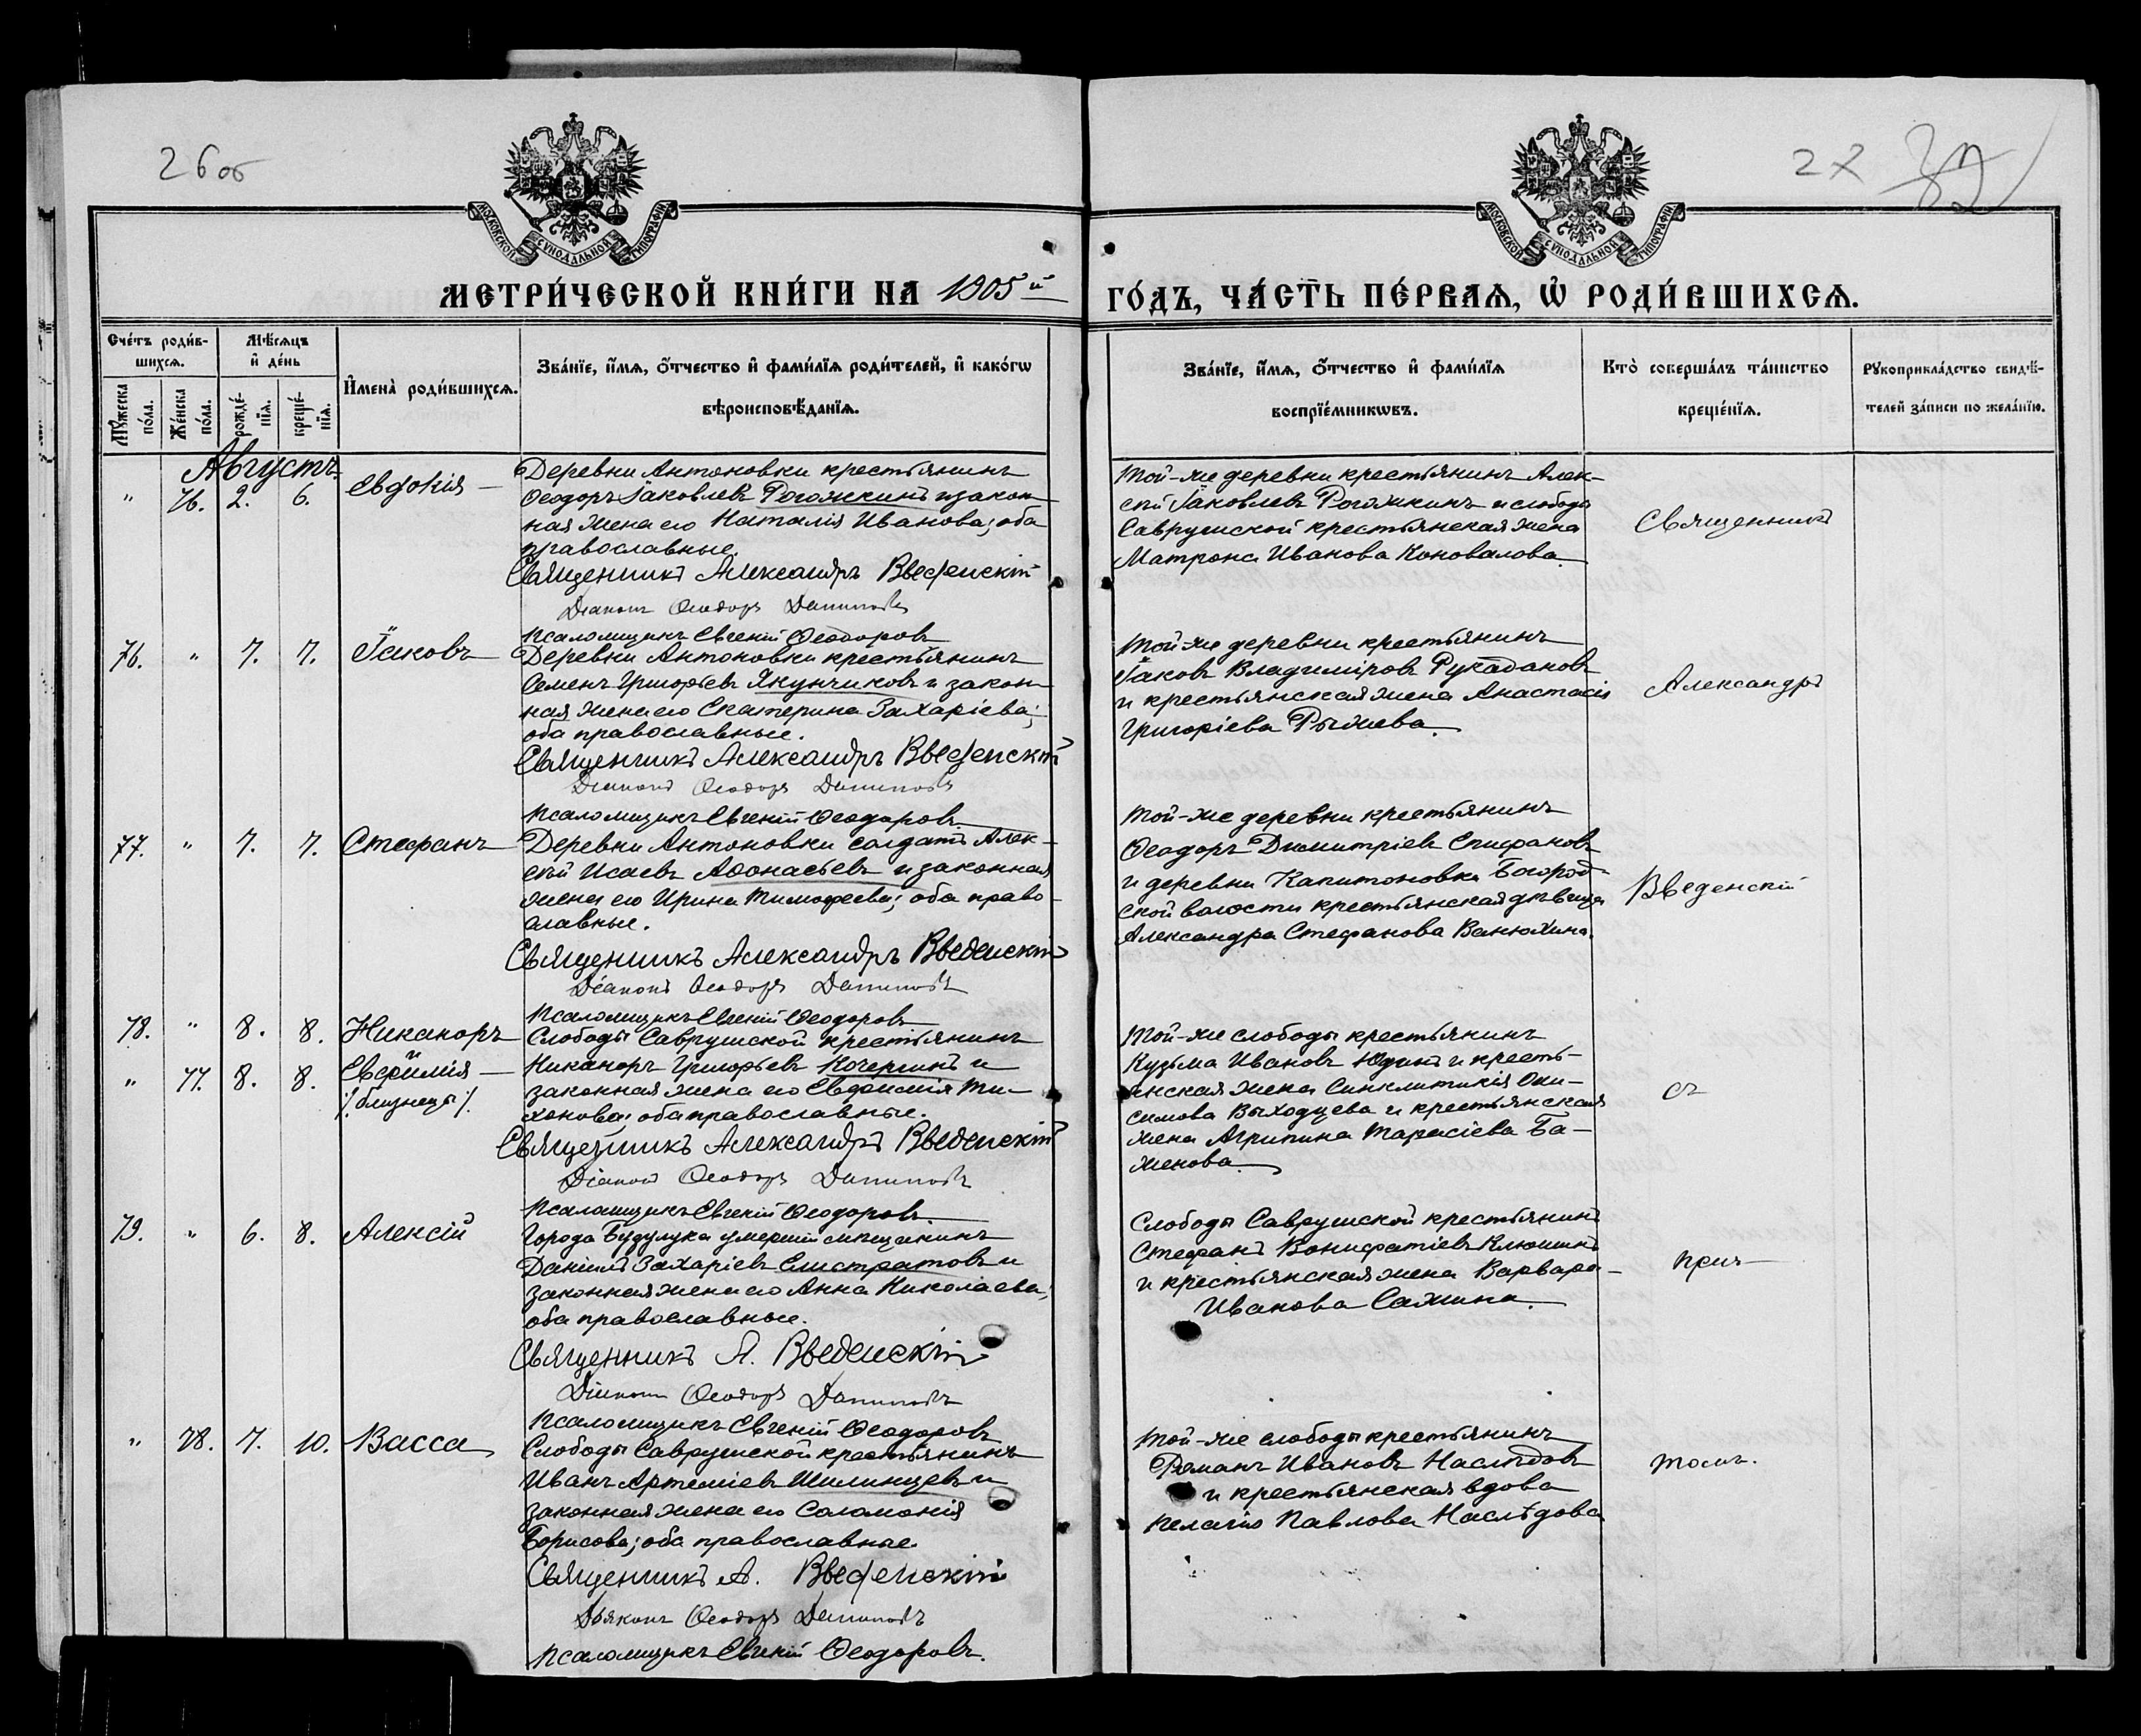 26 об
27
32
МОСКОВСКОЙ СѴНОДАЛЬНОЙ ТИПОГРАФІИ
МОСКОВСКОЙ СѴНОДАЛЬНОЙ ТИПОГРАФІИ
МЕТРИ́ЧЕСКОЙ КНИ́ГИ НА 1905й
ГО́ДЪ, ЧА́СТЬ ПЕ́РВАѦ, Ѡ҆ РОДИ́ВШИХСѦ.
Сче́тъ роди́в-
шихсѧ.
Мѣ́сѧцъ
и҆ де́нь
Мꙋ́жеска
по́ла.
Же́нска
по́ла.
рожде́-
нїѧ.
креще́-
нїѧ.
И҆мена̀ роди́вшихсѧ.
Зва́нїе, и҆́мѧ, ѻ҆́тчество и҆ фами́лїѧ роди́телей, и҆ како́гѡ
вѣроисповѣ́данїѧ.
Зва́нїе, и҆́мѧ, ѻ҆́тчество и҆ фами́лїѧ
воспрїе́мникѡвъ.
Кто̀ соверша́лъ та́инство
креще́нїѧ.
Рꙋкоприкла́дство свидѣ́-
телей за́писи по жела́нїю.
Августъ.
" 76. 2. 6. Евдокія
Деревни Антоновки крестьянинъ
Ѳеодоръ Іаковлевъ Рогожкинъ и закон-
ная жена его Наталія Иванова; оба
православные.
Священникъ Александръ Введенскій
Діаконъ Ѳеодоръ Даниловъ
Псаломщикъ Евгеній Ѳеодоровъ
Той-же деревни крестьянинъ Алек-
сѣй Іаковлевъ Рогожкинъ и слободы
Саврушской крестьянская жена
Матрона Иванова Коновалова.
Священникъ
76. " 7. 7. Іаковъ
Деревни Антоновки крестьянинъ
Семенъ Григорьевъ Якунчиковъ и закон-
ная жена его Екатерина Захаріева;
оба православные.
Священникъ Александръ Введенскій
Діаконъ Ѳеодоръ Даниловъ
Псаломщикъ Евгеній Ѳеодоровъ
Той-же деревни крестьянинъ
Іаковъ Владиміровъ Рукадановъ
и крестьянская жена Анастасія
Григоріева Рыжева.
Александръ
77. " 7. 7. Стефанъ
Деревни Антоновки солдатъ Алек-
сѣй Исаевъ Аѳонасьевъ и законная
жена его Ирина Тимофеева; оба право-
славные.
Священникъ Александръ Введенскій
Діаконъ Ѳеодоръ Даниловъ
Псаломщикъ Евгеній Ѳеодоровъ
Той-же деревни крестьянинъ
Ѳеодоръ Димитріевъ Епифановъ
и деревни Капитоновки Богород-
ской волости крестьянская дѣвица
Александра Стефанова Ванюхина.
Введенскій
78. " 8. 8. Никаноръ
" 77. 8. 8. Евфимія
/. близнецы /.
Слободы Саврушской крестьянинъ
Никаноръ Григорьевъ Кочергинъ и
законная жена его Евфимія Ти-
хонова; оба православные.
Священникъ Александръ Введенскій
Діаконъ Ѳеодоръ Даниловъ
Псаломщикъ Евгеній Ѳеодоровъ.
Той-же слободы крестьянинъ
Кузьма Ивановъ Юдинъ и кресть-
янская жена Синклитикія Они-
симова Выходцева и крестьянская
жена Агрипина Тарасіева Ба-
женова.
съ
79. " 6. 8. Алексій
Города Бузулука умершій мѣщанинъ
Даніилъ Захаріевъ Елистратовъ и
законная жена его Анна Николаева;
оба православные.
Священникъ А. Введенскій
Діаконъ Ѳеодоръ Даниловъ
Псаломщикъ Евгеній Ѳеодоровъ
Слободы Саврушской крестьянинъ
Стефанъ Вонифатіевъ Клюшинъ
и крестьянская жена Варвара
Иванова Сажина.
прич-
" 78. 7. 10. Васса
Слободы Саврушской крестьянинъ
Иванъ Артеміевъ Шилинцевъ и
законная жена его Соломонія
Борисова; оба православные.
Священникъ А. Введенскій
Дьяконъ Ѳеодоръ Даниловъ
Псаломщикъ Евгеній Ѳеодоровъ.
Той-же слободы крестьянинъ
Романъ Ивановъ Наслѣдовъ
и крестьянская вдова
Пелагія Павлова Наслѣдова
томъ.